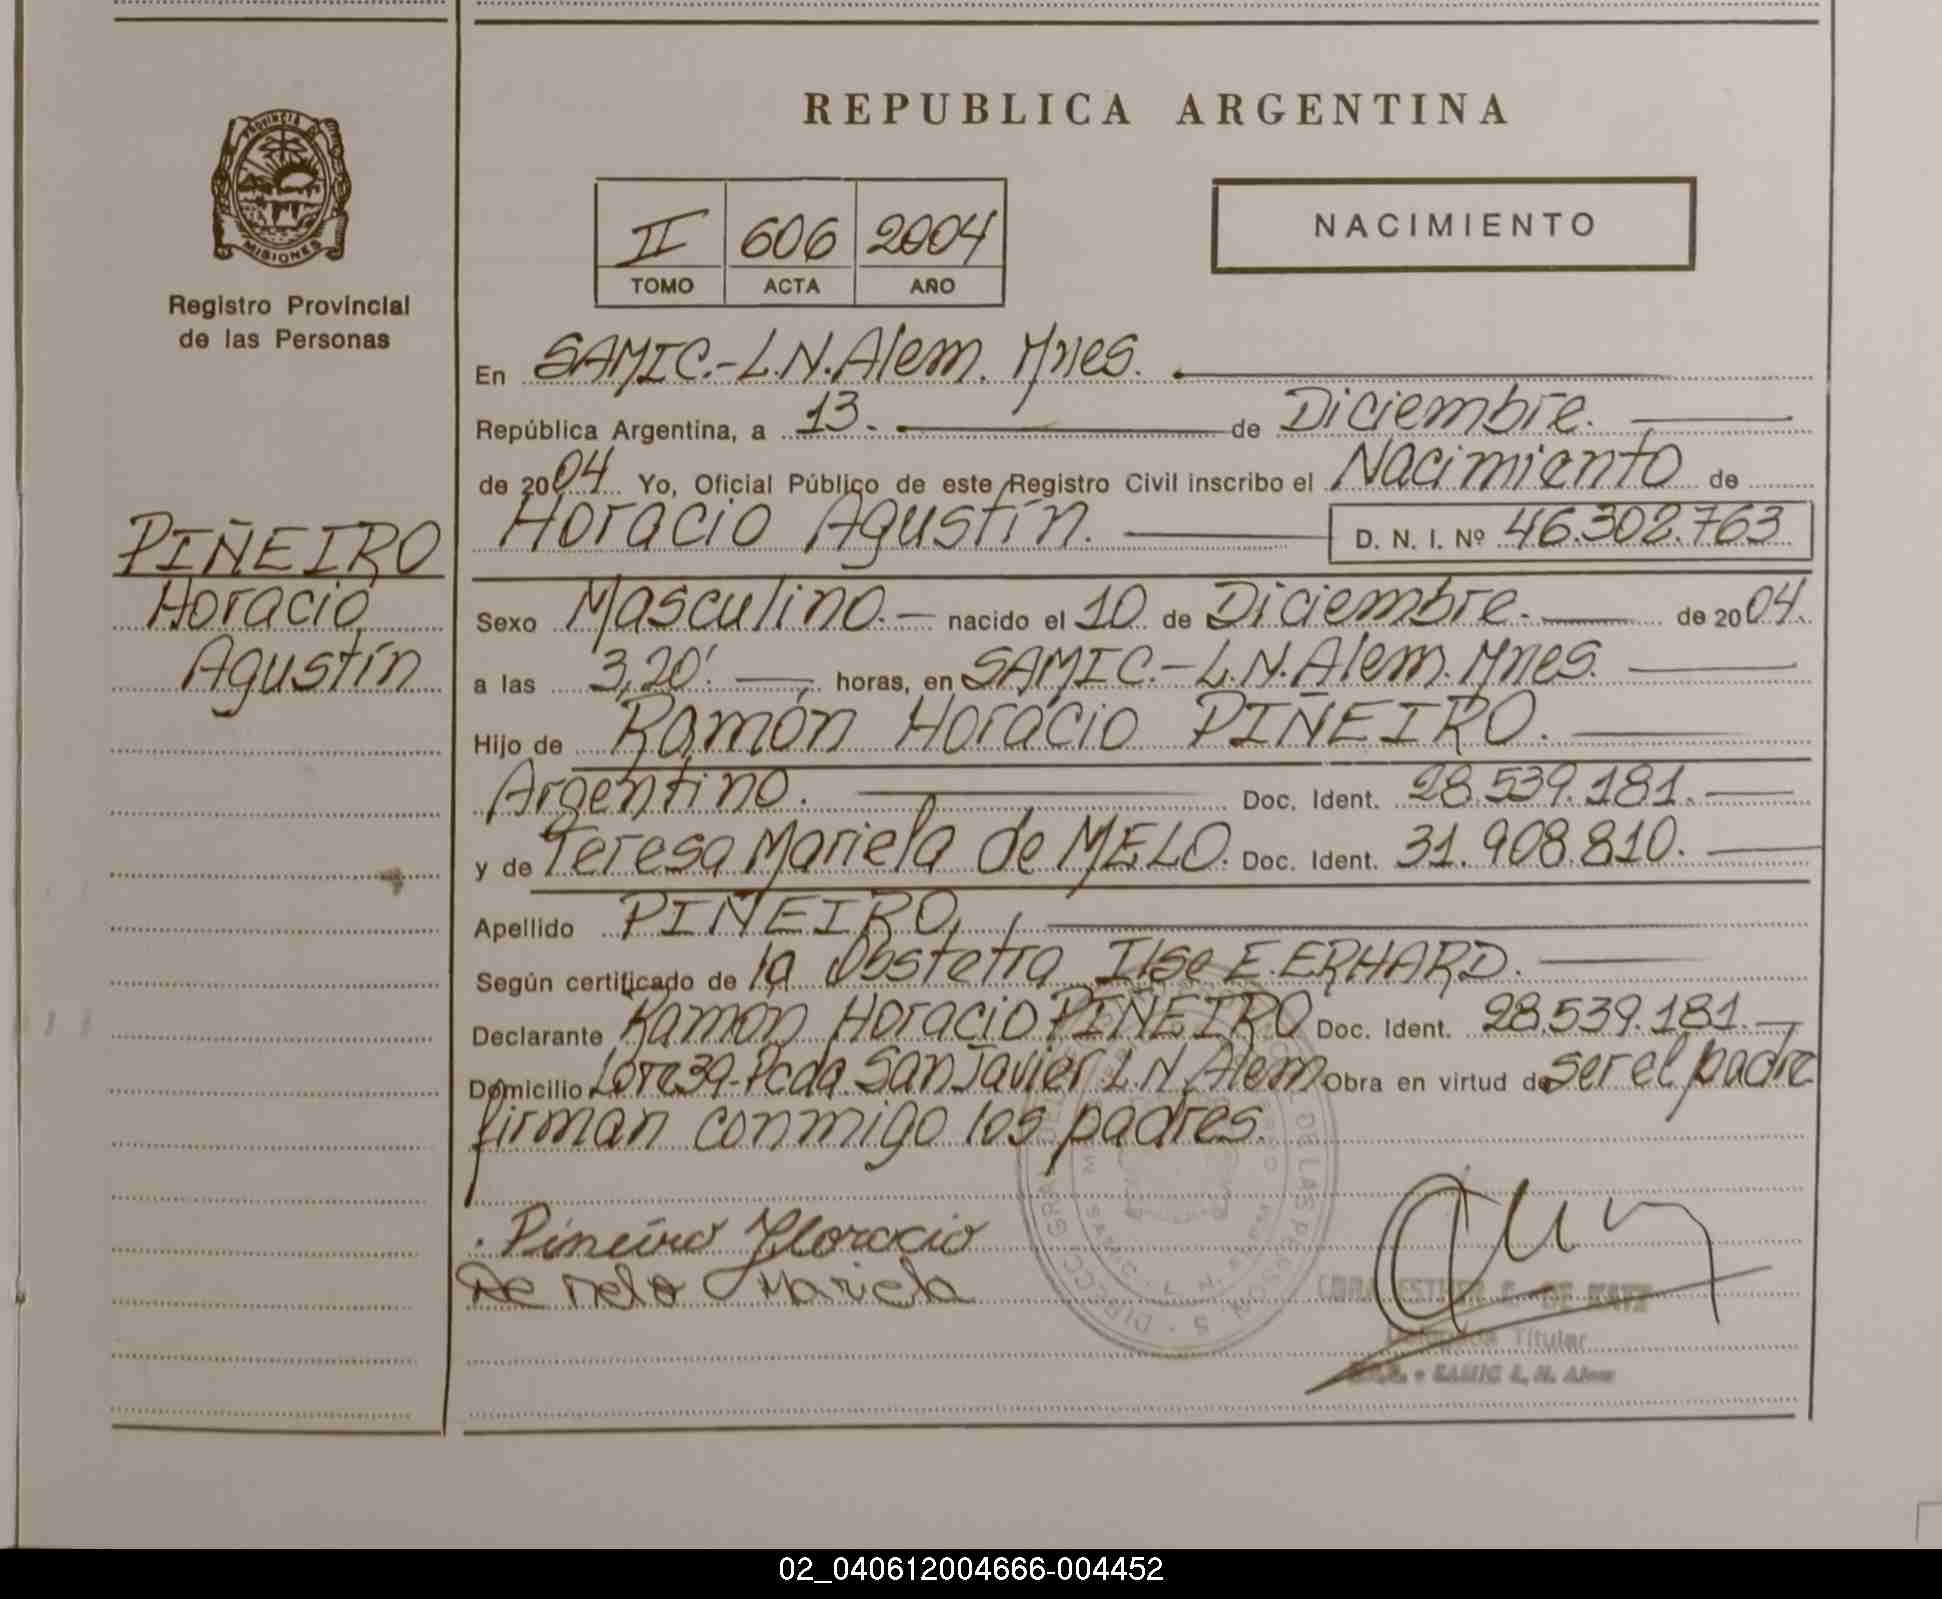 REPUBLICA ARGENTINA
PROVINCIA DE
MISIONES
Registro Provincial
de las Personas
II 606 2004
TOMO ACTA AÑO
NACIMIENTO
PIÑEIRO
Horacio
Agustín
En SAMIC.-L.N.Alem. Mnes.
República Argentina, a 13. de Diciembre.
de 2004 Yo, Oficial Público de este Registro Civil inscribo el Nacimiento de
Horacio Agustín. D. N. I. Nº 46.302.763
Sexo Masculino.- nacido el 10 de Diciembre. de 2004.
a las 3,20' horas, en SAMIC.-L.N.Alem. Mnes.
Hijo de Ramón Horacio PIÑEIRO.
Argentino. Doc. Ident. 28.539.181.
y de Teresa Mariela de MELO. Doc. Ident. 31.908.810.
Apellido PIÑEIRO.
Según certificado de la Obstetra Ilse E. ERHARD.
Declarante Ramón Horacio PIÑEIRO Doc. Ident. 28.539.181.
Domicilio Lote 39-Pcda. San Javier L.N.Alem Obra en virtud de ser el padre
firman conmigo los padres.
Piñeiro Horacio
De Melo Mariela
DE LAS PERSONAS
Titular
SAMIC L. N. Alem
02_040612004666-004452